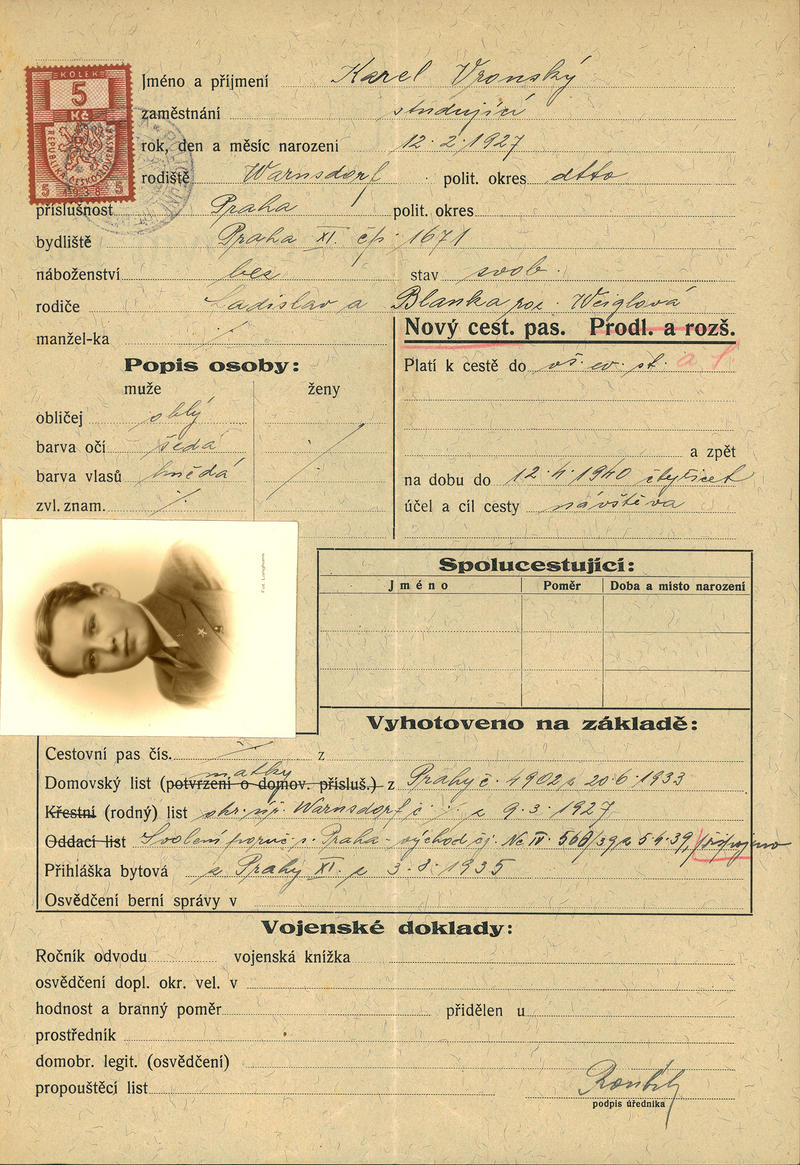 KOLEK
5
Kč
REPUBLIKA ČESKOSLOVENSKÁ
5 1938 5
Jméno a příjmení Karel Vronský
zaměstnání studující
rok, den a měsíc narození 12.2.1927
rodiště Warnsdorf polit. okres dtto
příslušnost Praha polit. okres
bydliště Praha XI. čp. 1671
náboženství bez stav svob.
rodiče Ladislav a Blanka roz. Weiglová
manžel-ka
Nový cest. pas. Prodl. a rozš.
Popis osoby:
Platí k cestě do vš. ev. st. a
muže ženy
obličej oblý
barva očí šedá
a zpět
barva vlasů hnědá
na dobu do 12.4.1940 čtyřicet
zvl. znam.
účel a cíl cesty návštěva
Fot. Langhans
Spolucestující:
Jméno Poměr Doba a místo narození
Vyhotoveno na základě:
Cestovní pas čís. z
matky
Domovský list (potvrzení o domov. přísluš.) z Prahy č. 4902 z 20.6.1933
Křestní (rodný) list okr. úř. Warnsdorf č z 9.3.1927
Oddací list Svolení poruč. s. Praha-východ čj. Nc IV. 568/39 z 5.4.39, připojeno
Přihláška bytová z Prahy XI. z 3.8.1935
Osvědčení berní správy v
Vojenské doklady:
Ročník odvodu vojenská knížka
osvědčení dopl. okr. vel. v
hodnost a branný poměr přidělen u
prostředník
domobr. legit. (osvědčení)
propouštěcí list
podpis úředníka